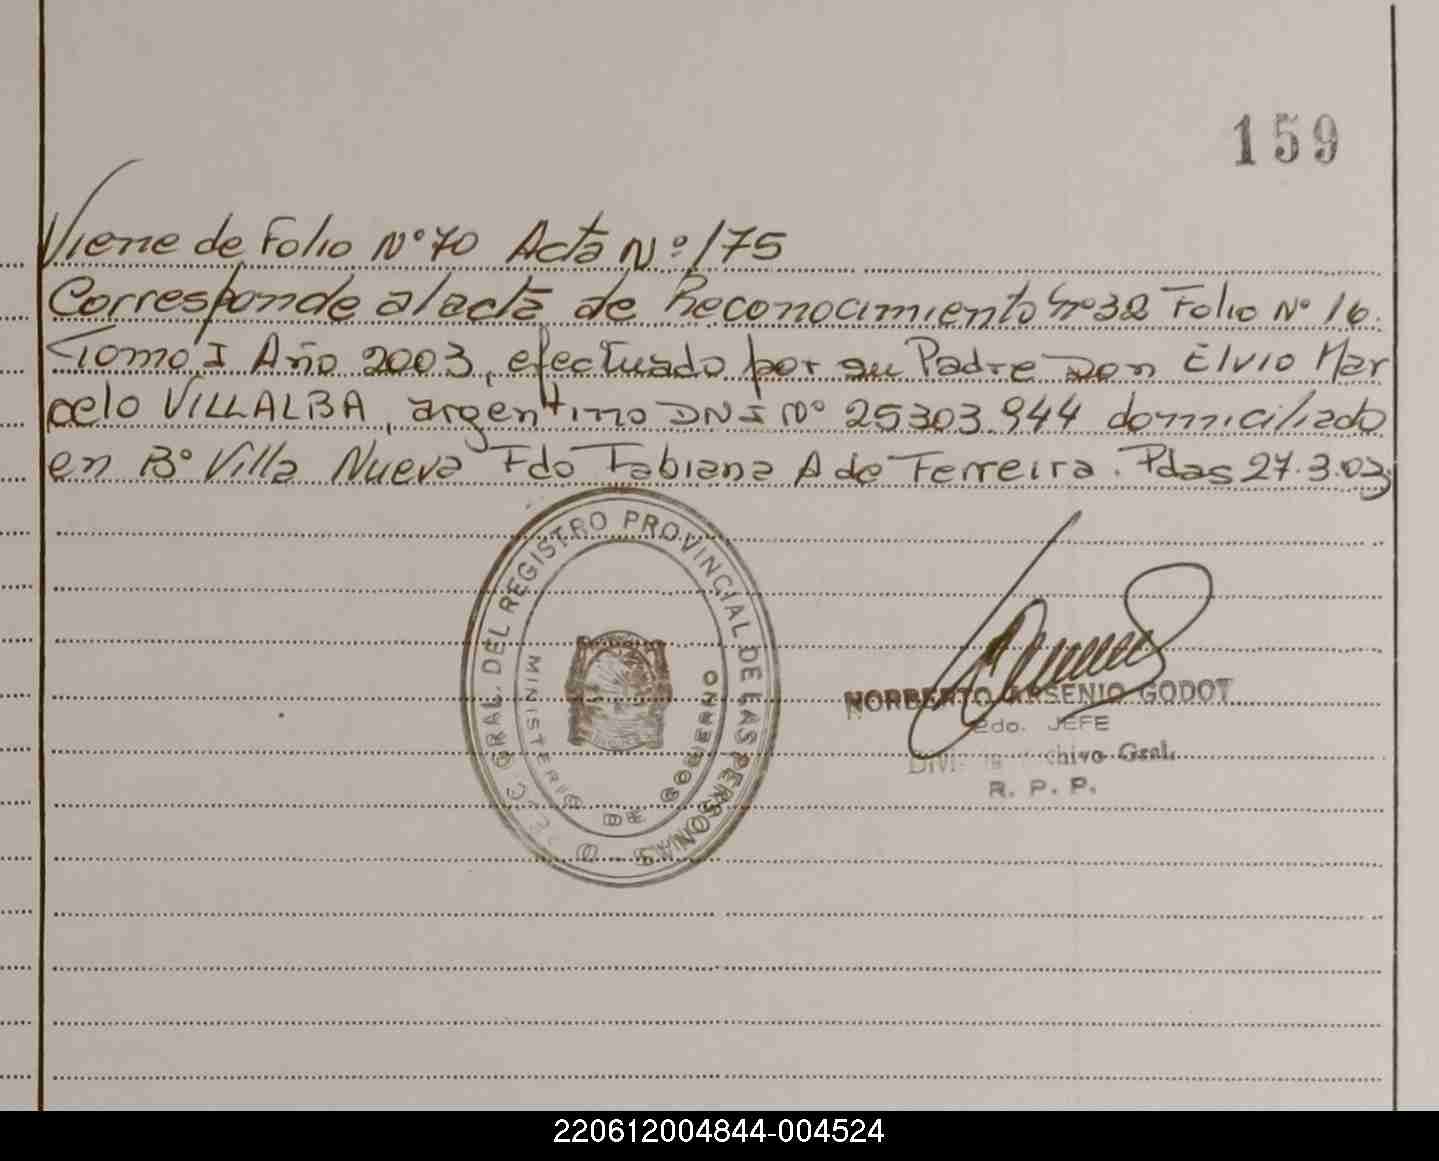 159
Viene de Folio Nº 70 Acta Nº 175
Corresponde al acta de Reconocimiento Nº 32 Folio Nº 16.
Tomo I Año 2003, efectuado por su Padre Don Elvio Mar
celo VILLALBA, argentino DNI Nº 25303.944 domiciliado
en Bº Villa Nueva Fdo Fabiana A de Ferreira. Pdas 27.3.03
GRAL. DEL REGISTRO PROVINCIAL DE LAS PERSONAS
MINISTERIO DE GOBIERNO
NORBERTO ARSENIO GODOY
2do. JEFE
Gral.
R. P. P.
220612004844-004524